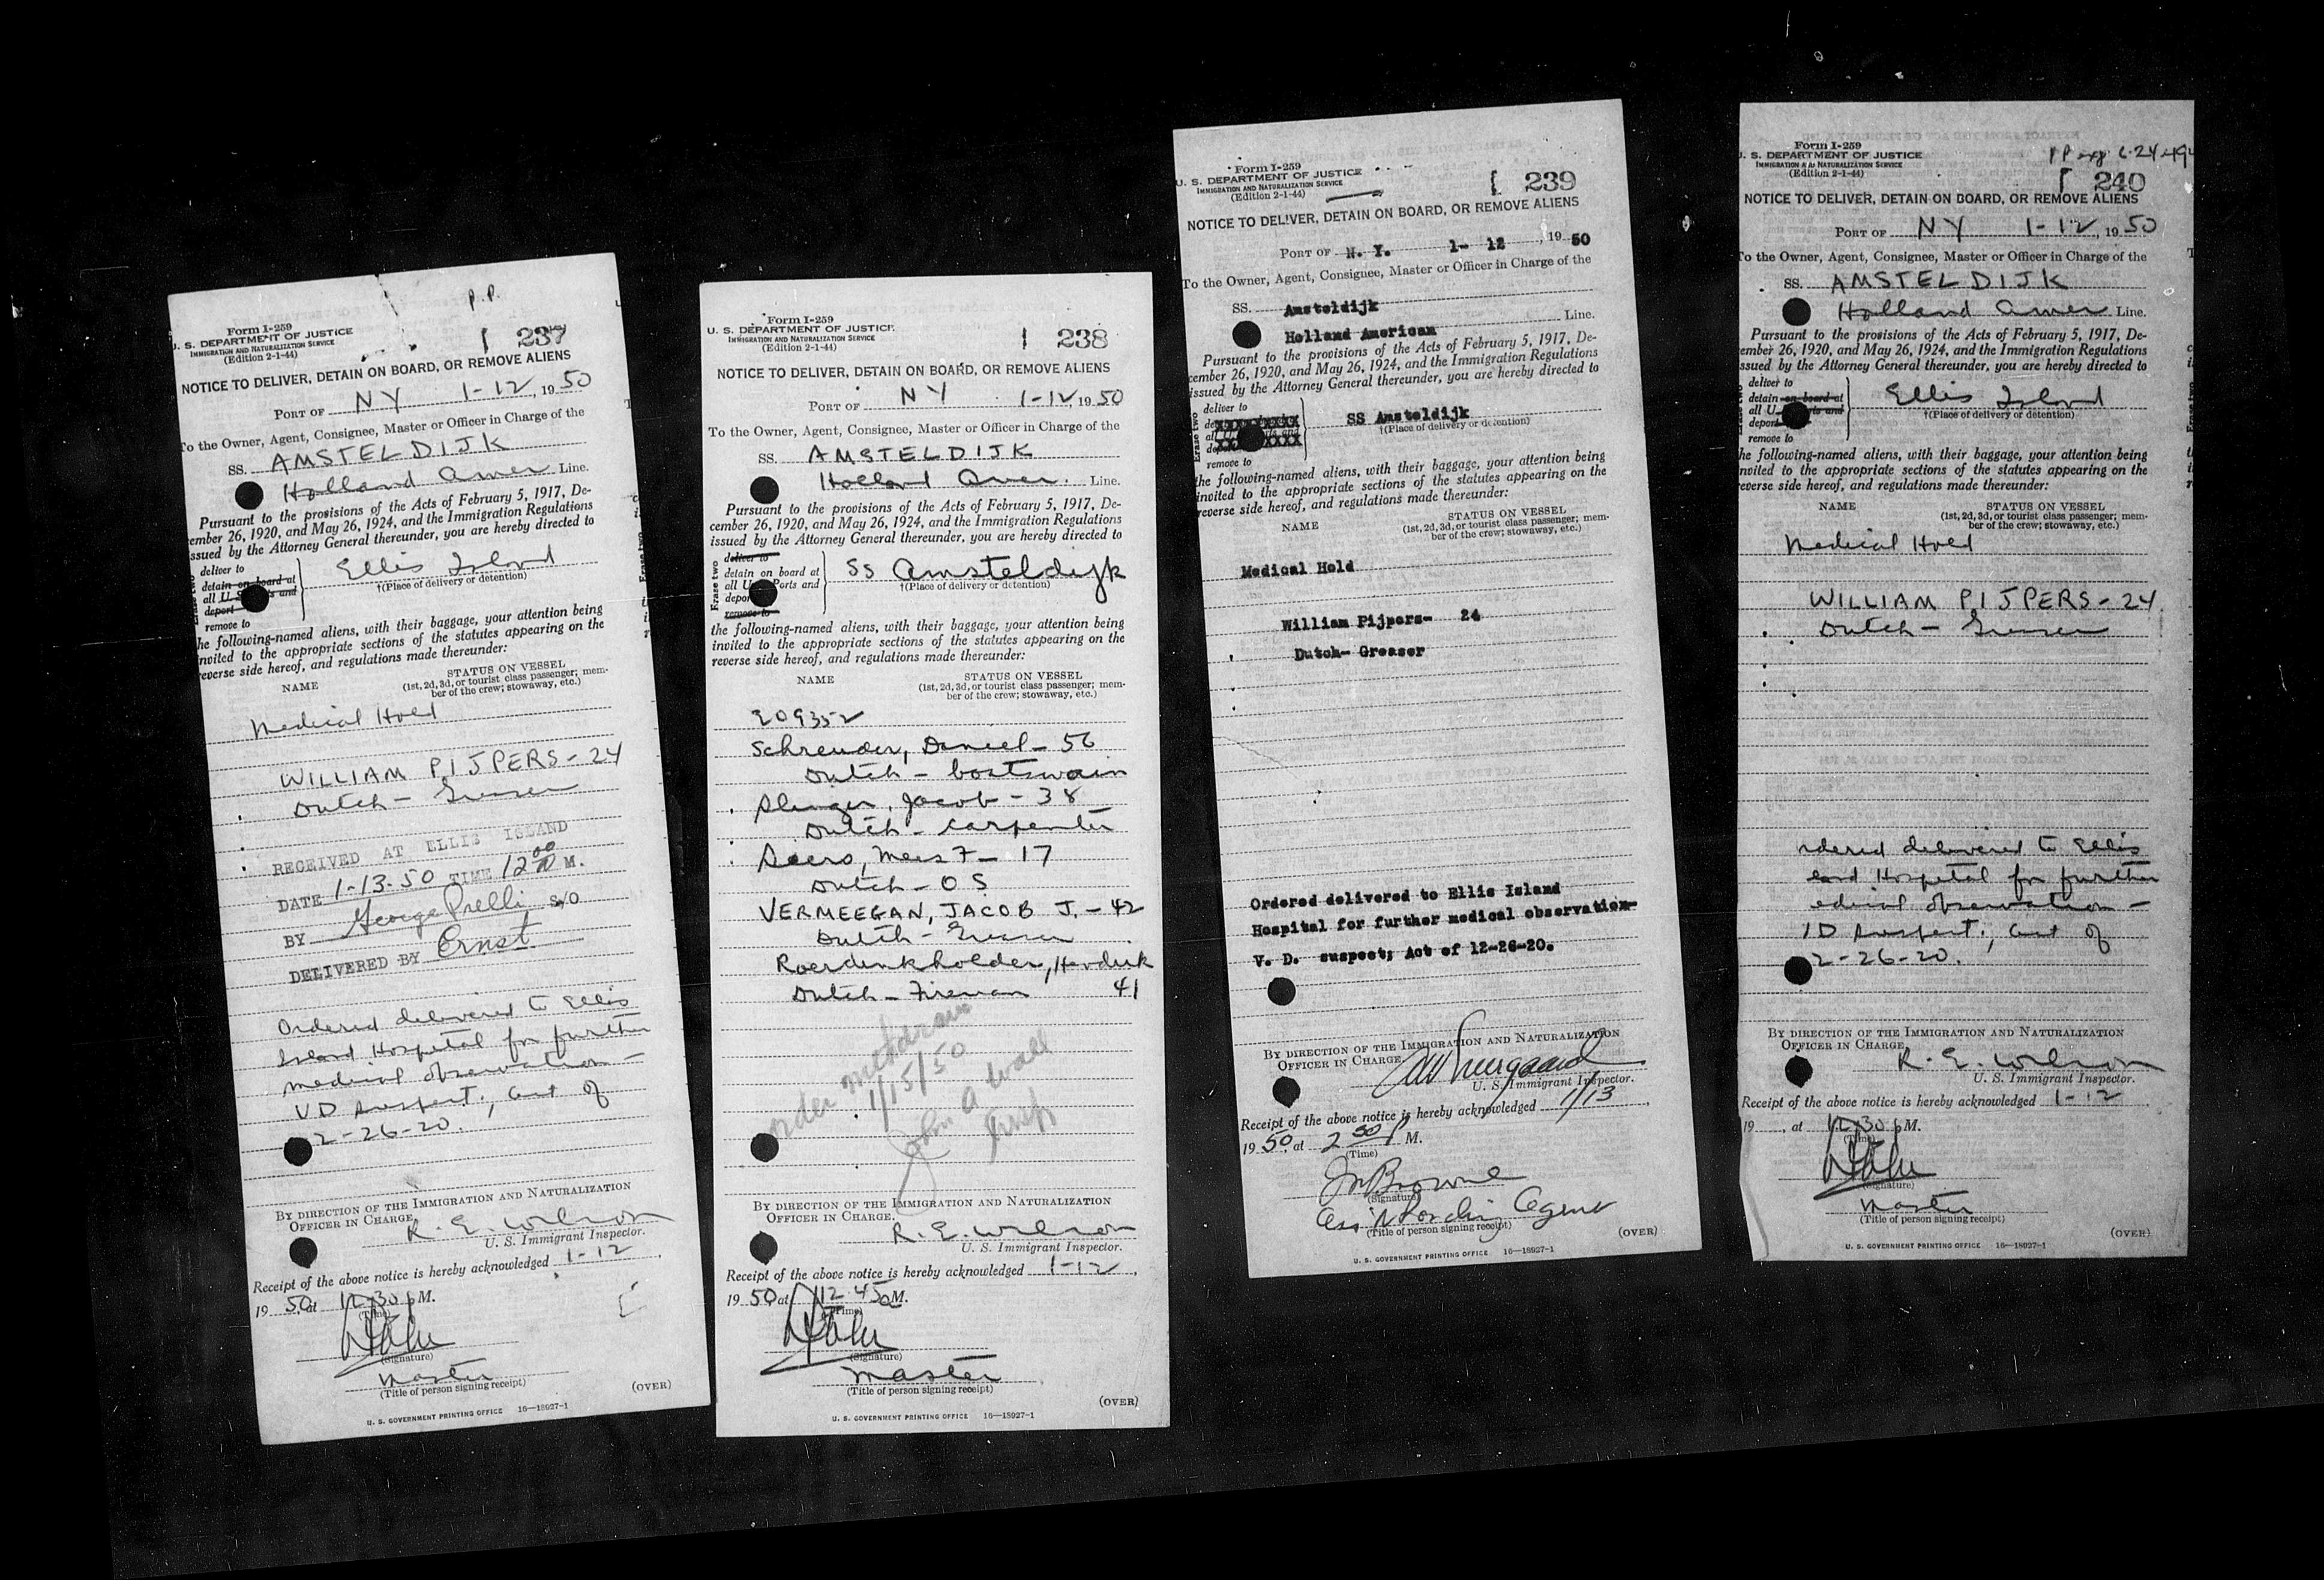 P.P.
Form I-259
U. S. DEPARTMENT OF JUSTICE
IMMIGRATION AND NATURALIZATION SERVICE
(Edition 2-1-44)
237
NOTICE TO DELIVER, DETAIN ON BOARD, OR REMOVE ALIENS
PORT OF NY 1-12, 1950
To the Owner, Agent, Consignee, Master or Officer in Charge of the
SS. AMSTELDIJK
Holland Amer Line.
Pursuant to the provisions of the Acts of February 5, 1917, De-
cember 26, 1920, and May 26, 1924, and the Immigration Regulations
issued by the Attorney General thereunder, you are hereby directed to
deliver to
detain on board at
all U. S. Ports and
deport
remove to
Ellis Island
†(Place of delivery or detention)
the following-named aliens, with their baggage, your attention being
invited to the appropriate sections of the statutes appearing on the
reverse side hereof, and regulations made thereunder:
NAME STATUS ON VESSEL
(1st, 2d, 3d, or tourist class passenger; mem-
ber of the crew; stowaway, etc.)
Medical Hold
WILLIAM PIJPERS - 24
Dutch - Greaser
RECEIVED AT ELLIS ISLAND
DATE 1-13-50 TIME 12 00 M.
BY George Prelli S/O
DELIVERED BY Ernst
Ordered delivered to Ellis
Island Hospital for further
medical observation -
VD suspect; Act of
2-26-20.
BY DIRECTION OF THE IMMIGRATION AND NATURALIZATION
OFFICER IN CHARGE.
R. E. Wilson
U. S. Immigrant Inspector.
Receipt of the above notice is hereby acknowledged 1-12
1950, at 12:30 pM.
(Time)
(Signature)
Master
(Title of person signing receipt)
(OVER)
U. S. GOVERNMENT PRINTING OFFICE 16—18927-1
Form I-259
U. S. DEPARTMENT OF JUSTICE
IMMIGRATION AND NATURALIZATION SERVICE
(Edition 2-1-44)
238
NOTICE TO DELIVER, DETAIN ON BOARD, OR REMOVE ALIENS
PORT OF NY 1-12, 1950
To the Owner, Agent, Consignee, Master or Officer in Charge of the
SS. AMSTELDIJK
Holland Amer. Line.
Pursuant to the provisions of the Acts of February 5, 1917, De-
cember 26, 1920, and May 26, 1924, and the Immigration Regulations
issued by the Attorney General thereunder, you are hereby directed to
Erase two
deliver to
detain on board at
all U. S. Ports and
deport
remove to
SS Amsteldijk
†(Place of delivery or detention)
the following-named aliens, with their baggage, your attention being
invited to the appropriate sections of the statutes appearing on the
reverse side hereof, and regulations made thereunder:
NAME STATUS ON VESSEL
(1st, 2d, 3d, or tourist class passenger; mem-
ber of the crew; stowaway, etc.)
209352
Schreuder, Daniel - 56
Dutch - boatswain
Slinger, Jacob - 38
Dutch - carpenter
17
Dutch - OS
VERMEEGAN, JACOB J. - 42
Dutch - Greaser
Roerdinkholder, Hendrik
Dutch - Fireman 41
order withdrawn
1/15/50
John A Wall
Insp
BY DIRECTION OF THE IMMIGRATION AND NATURALIZATION
OFFICER IN CHARGE.
R. E. Wilson
U. S. Immigrant Inspector.
Receipt of the above notice is hereby acknowledged 1-12,
1950, at 12 45 M.
(Time)
(Signature)
Master
(Title of person signing receipt)
(OVER)
U. S. GOVERNMENT PRINTING OFFICE 16—18927-1
Form I-259
U. S. DEPARTMENT OF JUSTICE
IMMIGRATION AND NATURALIZATION SERVICE
(Edition 2-1-44)
239
NOTICE TO DELIVER, DETAIN ON BOARD, OR REMOVE ALIENS
PORT OF N. Y. 1- 12, 1950
To the Owner, Agent, Consignee, Master or Officer in Charge of the
SS. Amsteldijk
Holland American Line.
Pursuant to the provisions of the Acts of February 5, 1917, De-
cember 26, 1920, and May 26, 1924, and the Immigration Regulations
issued by the Attorney General thereunder, you are hereby directed to
Erase two
deliver to
remove to
SS Amsteldijk
†(Place of delivery or detention)
the following-named aliens, with their baggage, your attention being
invited to the appropriate sections of the statutes appearing on the
reverse side hereof, and regulations made thereunder:
NAME STATUS ON VESSEL
(1st, 2d, 3d, or tourist class passenger; mem-
ber of the crew; stowaway, etc.)
Medical Hold
William Pijpers- 24
Dutch- Greaser
Ordered delivered to Ellis Island
Hospital for further medical observation-
V. D. suspect; Act of 12-26-20.
BY DIRECTION OF THE IMMIGRATION AND NATURALIZATION
OFFICER IN CHARGE.
U. S. Immigrant Inspector.
Receipt of the above notice is hereby acknowledged 1/13
1950, at 2 50 P M.
(Time)
Jn Browne
(Signature)
Ass't Boarding Agent
(Title of person signing receipt)
(OVER)
U. S. GOVERNMENT PRINTING OFFICE 16—18927-1
PP exp 6-24-49
Form I-259
U. S. DEPARTMENT OF JUSTICE
IMMIGRATION AND NATURALIZATION SERVICE
(Edition 2-1-44)
240
NOTICE TO DELIVER, DETAIN ON BOARD, OR REMOVE ALIENS
PORT OF NY 1-12, 1950
To the Owner, Agent, Consignee, Master or Officer in Charge of the
SS. AMSTELDIJK
Holland Amer Line.
Pursuant to the provisions of the Acts of February 5, 1917, De-
cember 26, 1920, and May 26, 1924, and the Immigration Regulations
issued by the Attorney General thereunder, you are hereby directed to
deliver to
detain on board at
all U. S. Ports and
deport
remove to
Ellis Island
†(Place of delivery or detention)
the following-named aliens, with their baggage, your attention being
invited to the appropriate sections of the statutes appearing on the
reverse side hereof, and regulations made thereunder:
NAME STATUS ON VESSEL
(1st, 2d, 3d, or tourist class passenger; mem-
ber of the crew; stowaway, etc.)
Medical Hold
WILLIAM PIJPERS - 24
Dutch - Greaser
rdered delivered to Ellis
land Hospital for further
edical observation -
VD suspect; Act of
2-26-20.
BY DIRECTION OF THE IMMIGRATION AND NATURALIZATION
OFFICER IN CHARGE.
R. E. Wilson
U. S. Immigrant Inspector.
Receipt of the above notice is hereby acknowledged 1-12
19 , at 12:30 pM.
(Time)
(Signature)
Master
(Title of person signing receipt)
(OVER)
U. S. GOVERNMENT PRINTING OFFICE 16—18927-1